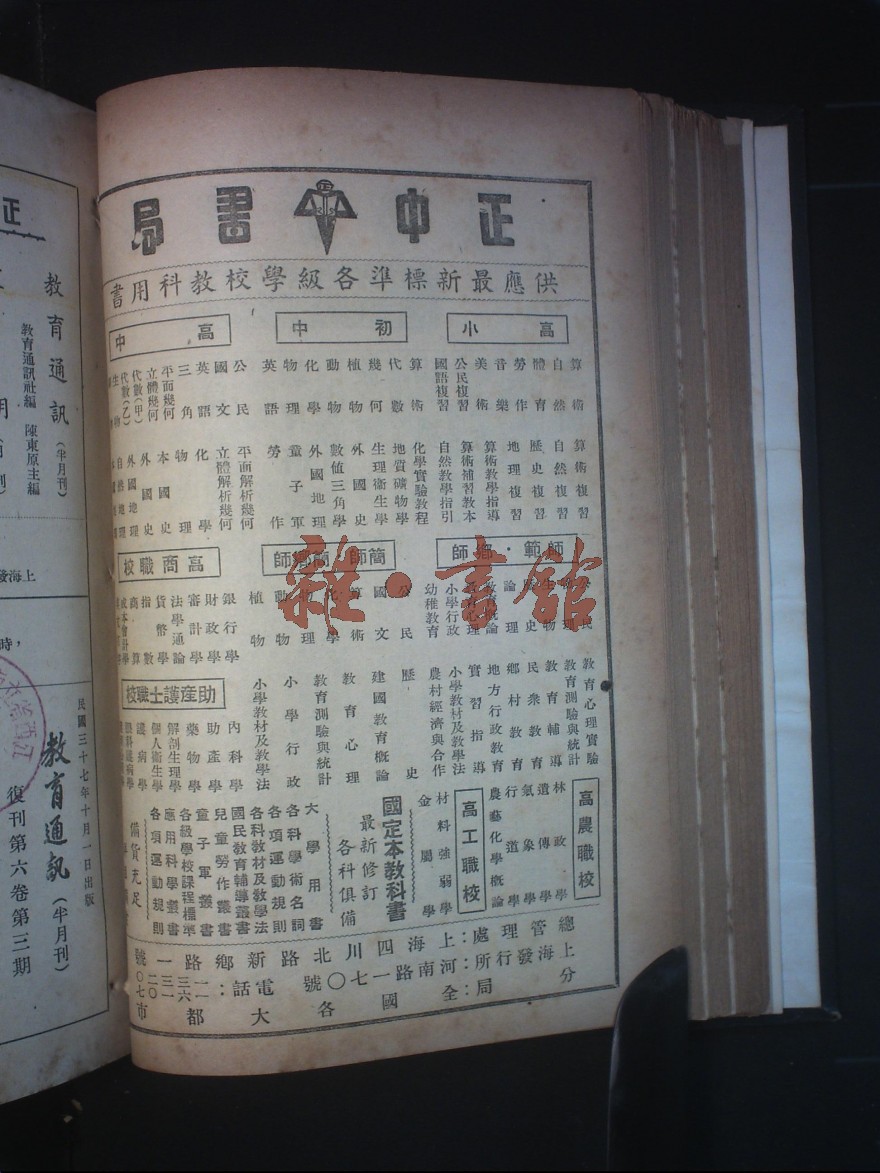 正中書局
供應最新標準各級學校教科用書
高小
算術
自然
體育
勞作
音樂
美術
公民複習
國語複習
算術複習
自然複習
歷史複習
地理複習
算術教學指導
算術補習教本
自然教學指引
初中
算術
代數
幾何
植物
動物
化學
物理
英語
化學實驗教程
地質礦物學
生理衛生學
外國史
數值三角學
外國地理
童子軍
勞作
高中
公民
國文
英語
三角
平面幾何
立體幾何
代數(甲)
代數(乙)
生物
平面解析幾何
立體解析幾何
化學
物理
本國史
外國史
外國地理
自然地理
師範·鄉師
公民
論理
教育概論
教育心理
小學行政
幼稚教育
教育心理實驗
教育測驗與統計
教育輔導
民衆教育
鄉村教育
地方行政教育
實習指導
小學教材及教學法
農村經濟與合作
簡師·簡鄉師
公民
國文
算術
化學
物理
動物
植物
歷史
建國教育概論
教育心理
教育測驗與統計
小學行政
小學教材及教學法
高商職校
銀行學
財政學
審計學
法學通論
貨幣學
指數
商算
成本會計學
助產護士職校
內科學
助產學
藥物學
解剖生理學
個人衛生學
護病學
高農職校
林政學
遺傳學
氣象學
行道學
農藝化學概論
高工職校
材料強弱學
金屬學
國定本教科書
最新修訂
各科俱備
大學用書
各科學術名詞
各項運動規則
各科教材及教學法
國民教育輔導叢書
兒童勞作叢書
童子軍叢書
各級學校課程標準
應用科學叢書
各項運動規則
備貨充足
總管理處:上海四川北路新鄉路一號
上海發行所:河南路一七〇號 電話:
分局 全國各大都市
教育通訊(半月刊)
教育通訊社編 陳東原主編
民國三十七年十月一日出版
教育通訊(半月刊)
復刊第六卷第三期
雜·書館